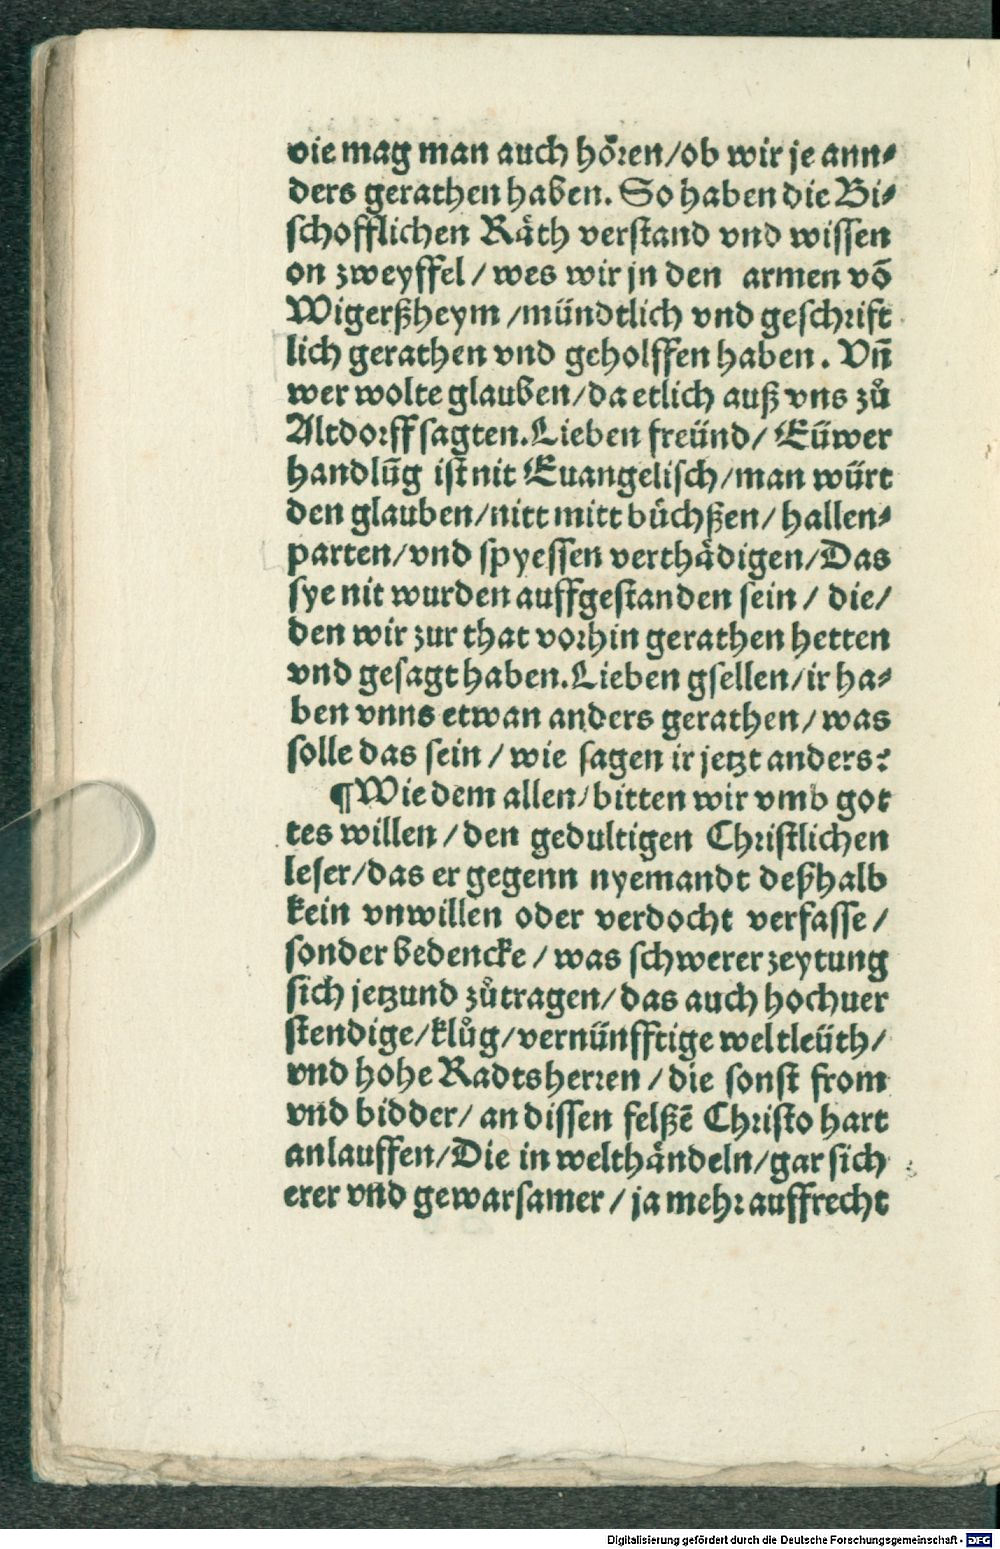 die mag man auch hören/ob wir je ann⸗
ders gerathen haben. So haben die Bi⸗
schofflichen Räth verstand vnd wissen
on zweyffel/ wes wir jn den armen võ
Wigerßheym /mündtlich vnd geschrift
lich gerathen vnd geholffen haben. Vñ
wer wolte glauben/da etlich auß vns zů
Altdorff sagten.Lieben freünd/ Eüwer
handlũg ist nit Euangelisch/man würt
den glauben/nitt mitt büchßen/ hallen⸗
parten/vnd spyessen verthädigen/Das
sye nit wurden auffgestanden sein/ die/
den wir zur that vorhin gerathen hetten
vnd gesagt haben.Lieben gsellen/ir ha⸗
ben vnns etwan anders gerathen/was
solle das sein/wie sagen ir jetzt anders?
¶Wie dem allen/bitten wir vmb got
tes willen/den gedultigen Christlichen
leser/das er gegenn nyemandt deßhalb
kein vnwillen oder verdocht verfasse/
sonder bedencke/was schwerer zeytung
sich jetzund zůtragen/das auch hochuer
stendige/klůg/vernünfftige weltleüth/
vnd hohe Radtsherren/die sonst from
vnd bidder/an dissen felßẽ Christo hart
anlauffen/Die in welthändeln/gar sich
erer vnd gewarsamer/ja mehr auffrecht
Digitalisierung gefördert durch die Deutsche Forschungsgemeinschaft - DFG